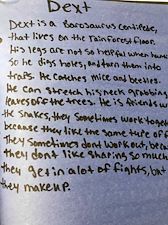 Dext
Dext is a Borosaurus centipede,
that lives on the rainforest floor.
His legs are not so helpful when hunting
so he digs holes, and turn them into
traps. He catches mice and beetles.
He can stretch his neck grabbing
leaves off the trees. He is friends with
the snakes, they sometimes work together
because they like the same type of food
They sometimes dont work out, because
they dont like sharing so much
they get in alot of fights, but
they make up.